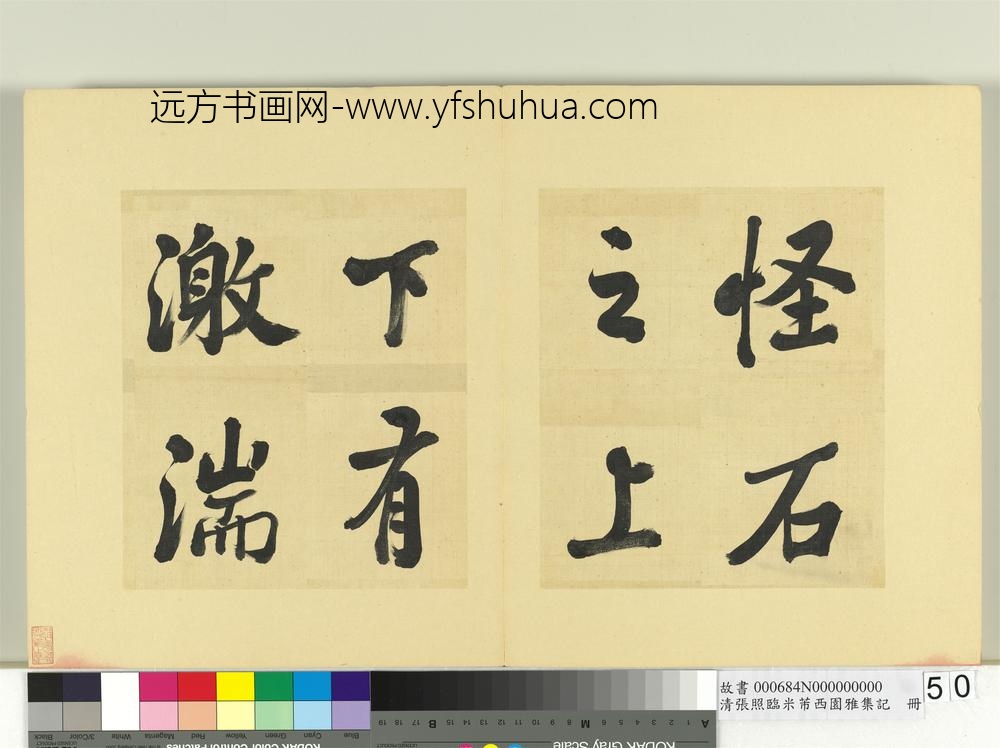 远方书画网-www.yfshuhua.com
怪石
之上
下有
激湍
故書 000684N000000000
清張照臨米芾西園雅集記 冊
50
Blue
Cyan
Green
Yellow
Red
Magenta
White
3/Color
Black
KODAK Color Control Patches
A 1 2 3 4 5 6 M 8 9 10 11 12 13 14 15 B 17 18 19
KODAK Gray Scale